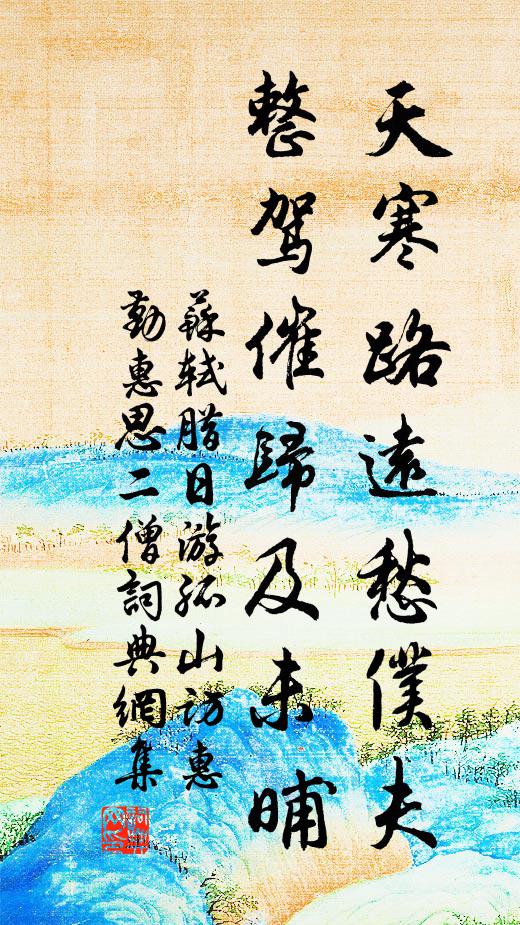 天寒路遠愁僕夫
整駕催歸及未晡
蘇軾腊日游孤山訪惠
勤惠思二僧詞典網集